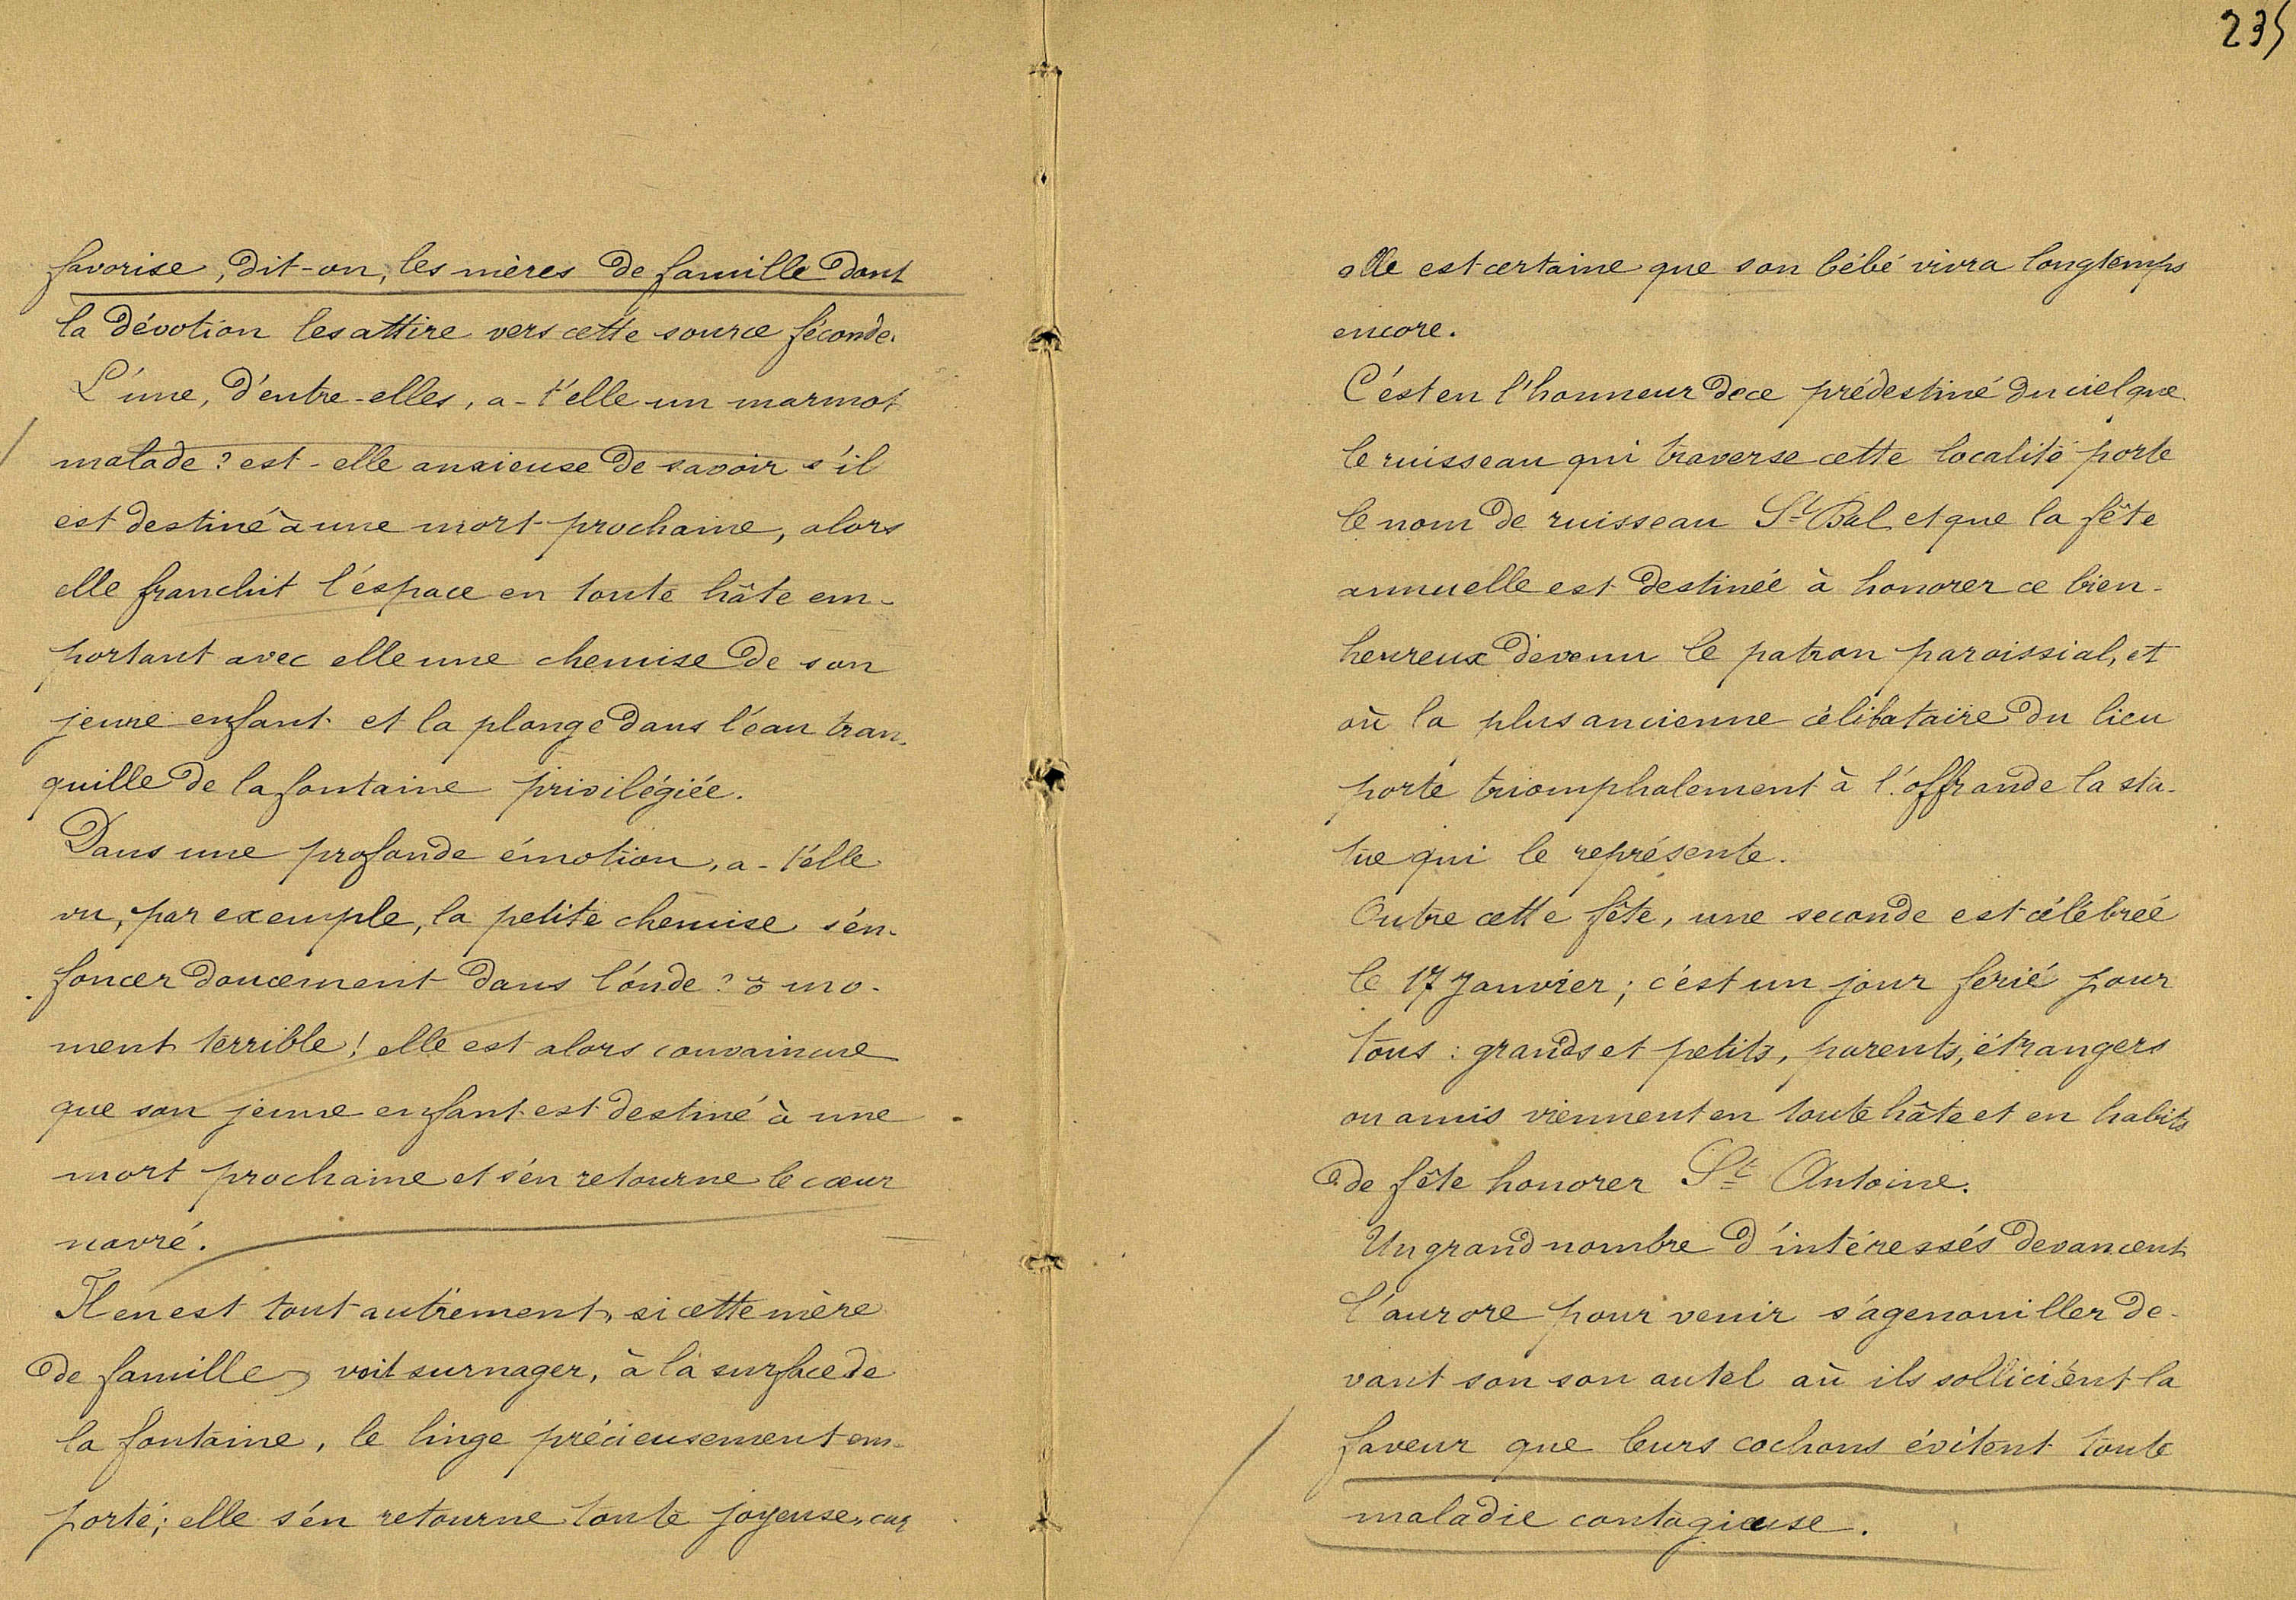 235
favorise, dit-on, les mères de famille dont
la dévotion les attire vers cette source féconde.
L'une, d'entre-elles, a-t'elle un marmot
malade? est-elle anxieuse de savoir s'il
est destiné à une mort prochaine, alors
elle franchit l'éspace en toute hâte em-
portant avec elle une chemise de son
jeune enfant et la plonge dans l'éau tran-
quille de la fontaine privilégiée.
Dans une profonde émotion, a-t'elle
vu, par exemple, la petite chemise s'én-
foncer doucement dans l'ónde? ô mo-
ment terrible! elle est alors convaincue
que son jeune enfant est destiné à une
mort prochaine et s'én retourne le cœur
navré.
Il en est tout autrement, si cette mère
de famille, voit surnager, à la surface de
la fontaine, le linge précieusement em-
porté; elle s'én retourne toute joyeuse, car
elle est certaine que son bébé vivra longtemps
encore.
C'ést en l'honneur de ce prédestiné du ciel que
le ruisseau qui traverse cette localité porte
le nom de ruisseau St Bal et que la fête
annuelle est destinée à honorer ce bien-
heureux devenu le patron paroissial, et
où la plus ancienne célibataire du lieu
porte triomphalement à l'offrande la sta-
tue qui le représente.
Outre cette fête, une seconde est célébrée
le 17 Janvier; c'ést un jour ferié pour
tous: grands et petits, parents, étrangers
ou amis viennent en toute hâte et en habits
de fête honorer St Antoine.
Un grand nombre d'intéressés devancent
l'aurore pour venir s'agenouiller de-
vant son son autel où ils sollicitent la
faveur que leurs cochons évitent toute
maladie contagieuse.